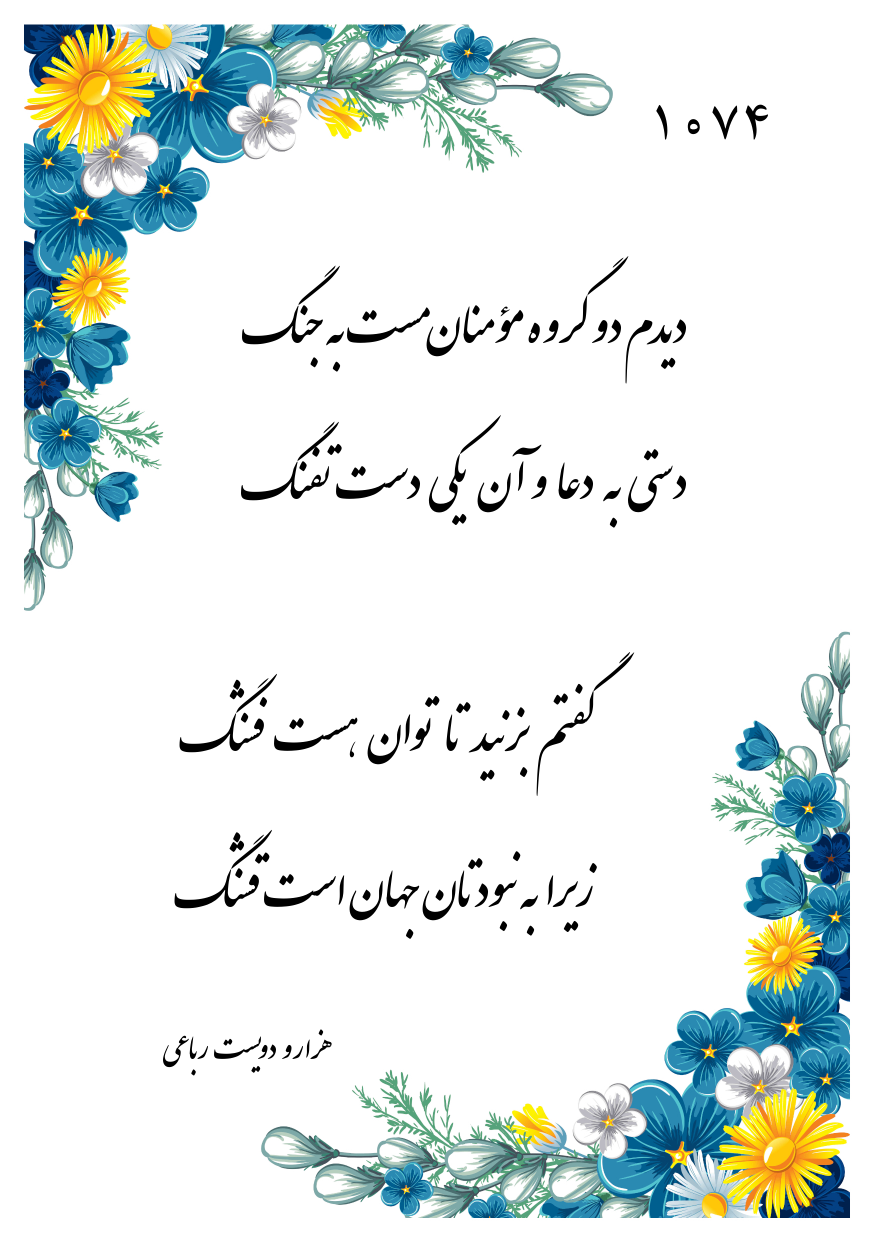 ۱۰۷۴
دیدم دو گروه مؤمنان مست به جنگ
دستی به دعا و آن یکی دست تفنگ
گفتم بزنید تا توان هست فشنگ
زیرا به نبودتان جهان است قشنگ
هزار و دویست رباعی